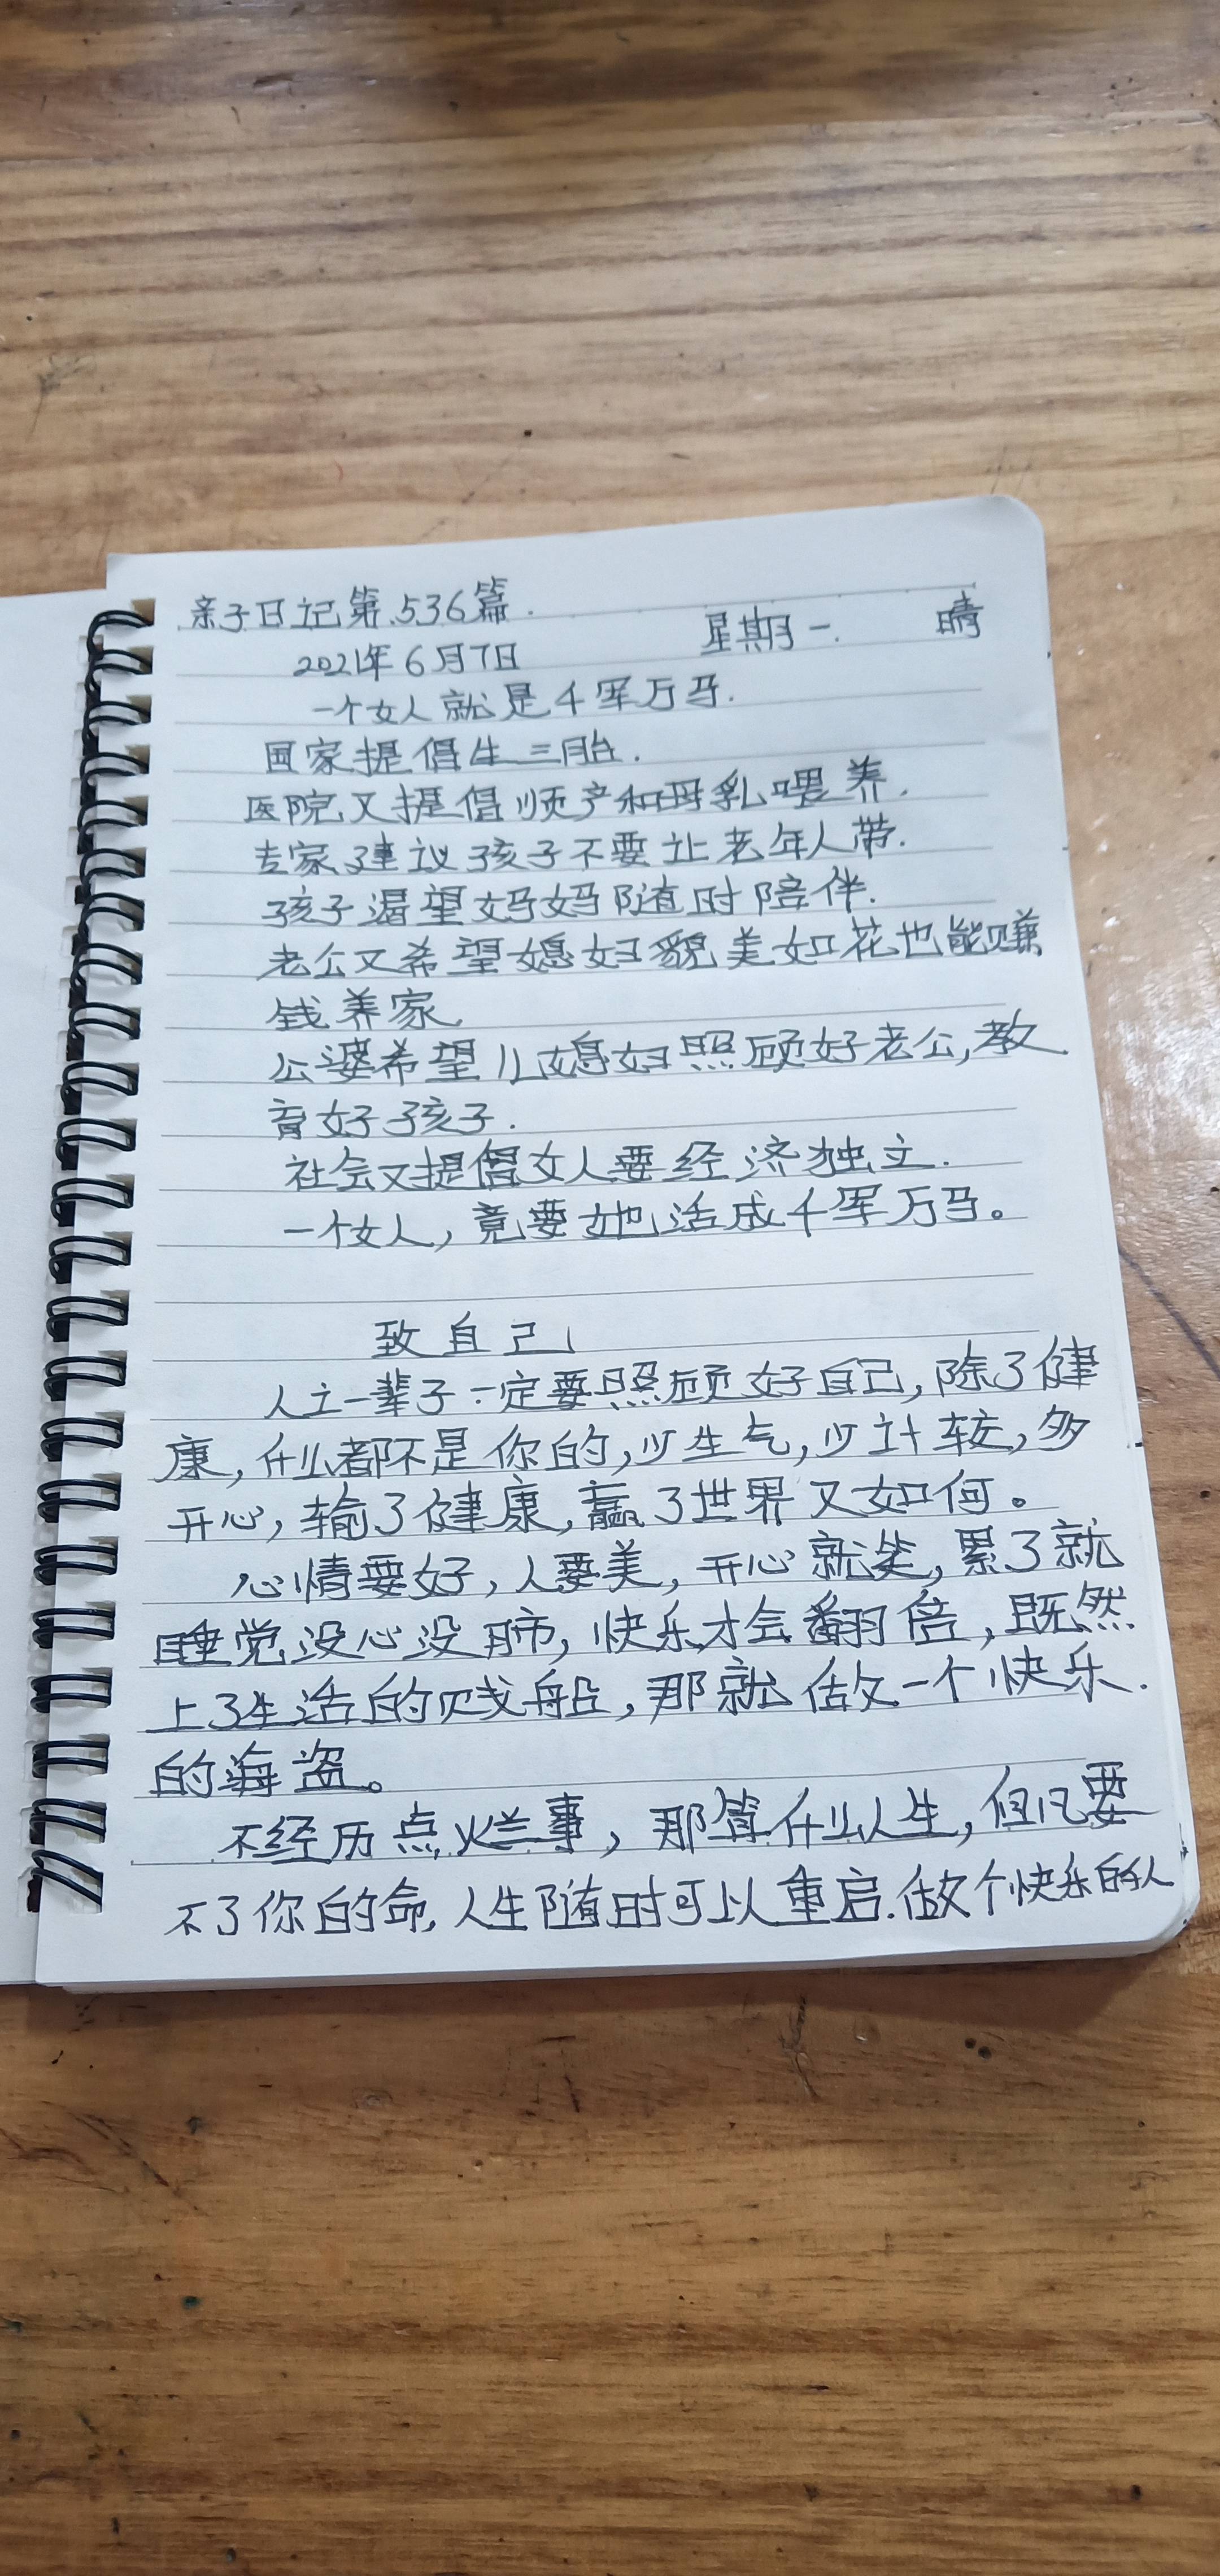 亲子日记第.536篇.
2021年6月7日 星期一. 晴
一个女人就是千军万马.
国家提倡生三胎.
医院又提倡顺产和母乳喂养.
专家建议孩子不要让老年人带.
孩子渴望妈妈随时陪伴.
老公又希望媳妇貌美如花也能赚
钱养家
公婆希望儿媳妇照顾好老公,教
育好孩子.
社会又提倡女人要经济独立.
一个女人,竟要她活成千军万马。
致自己
人立一辈子一定要照顾好自己,除了健
康,什么都不是你的,少生气,少计较,多
开心,输了健康,赢了世界又如何。
心情要好,人要美,开心就笑,累了就
睡觉没心没肺,快乐才会翻倍,既然
上了生活的贱船,那就做一个快乐.
的海盗。
不经历点烂事,那算什么人生,但凡要
不了你的命,人生随时可以重启.做个快乐的人